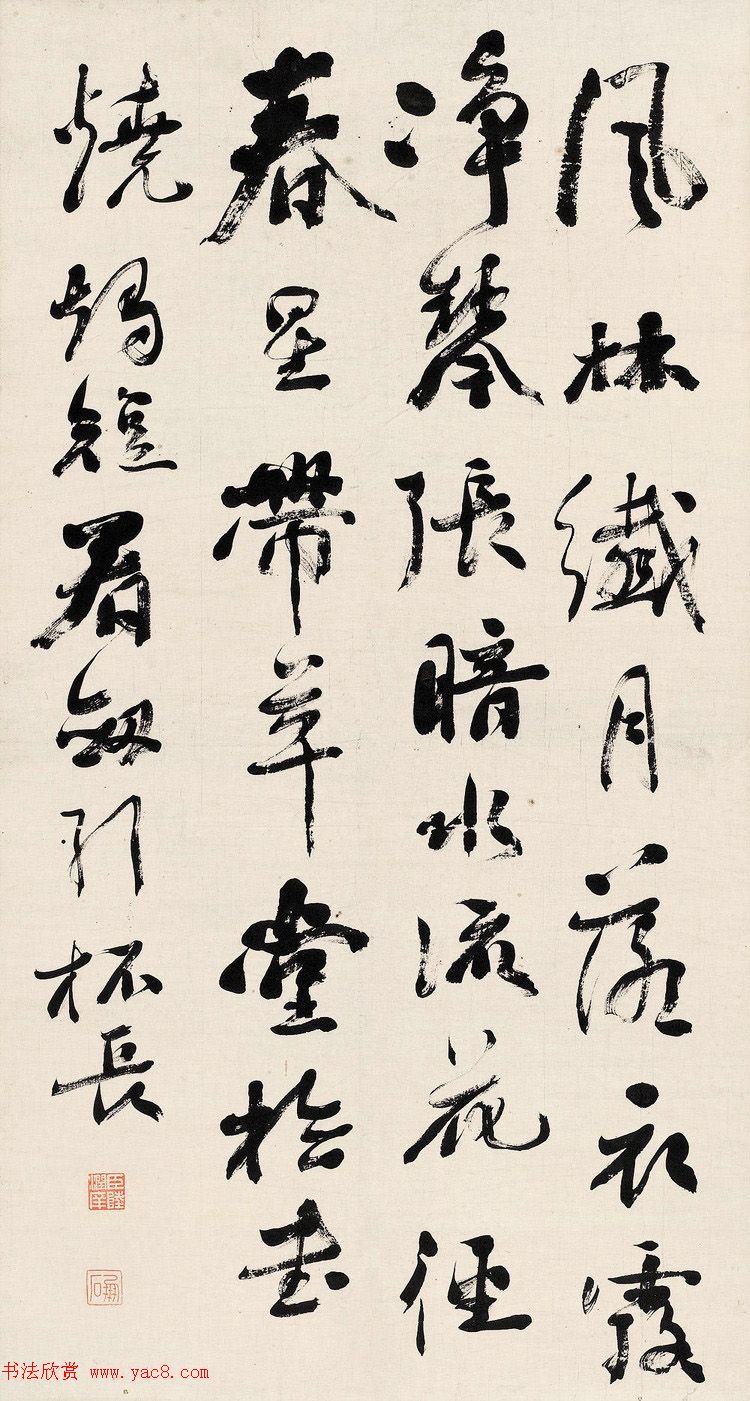 風林纖月落衣露
凈琴張暗水流花徑
春星帶草堂檢書
燒燭短看劍引杯長
臣陸潤庠
书法欣赏 www.yac8.com